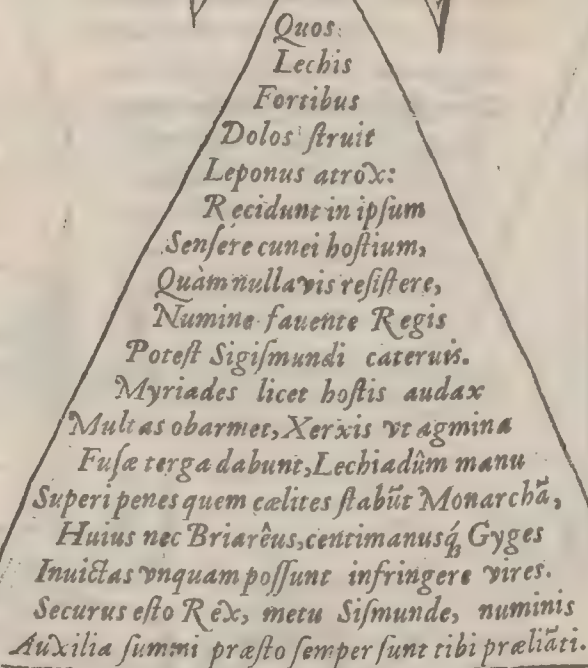 Quos
Lechis
Fortibus
Dolos ſtruit
Leponus atrox:
Recidunt in ipſum
Senſére cunei hoſtium,
Quàm nulla vis reſiſtere,
Numine fauente Regis
Poteſt Sigiſmundi cateruis.
Myriades licet hoſtis audax
Multas obarmet, Xerxis vt agmina
Fuſæ terga dabunt, Lechiadûm manu
Superi penes quem cælites ſtabūt Monarchā,
Huius nec Briarêus, centimanusq́; Gyges
Inuictas vnquam poſſunt infringere vires.
Securus eſto Rex, metu Siſmunde, numinis
Auxilia ſummi præſto ſemper ſunt tibi præliāti.